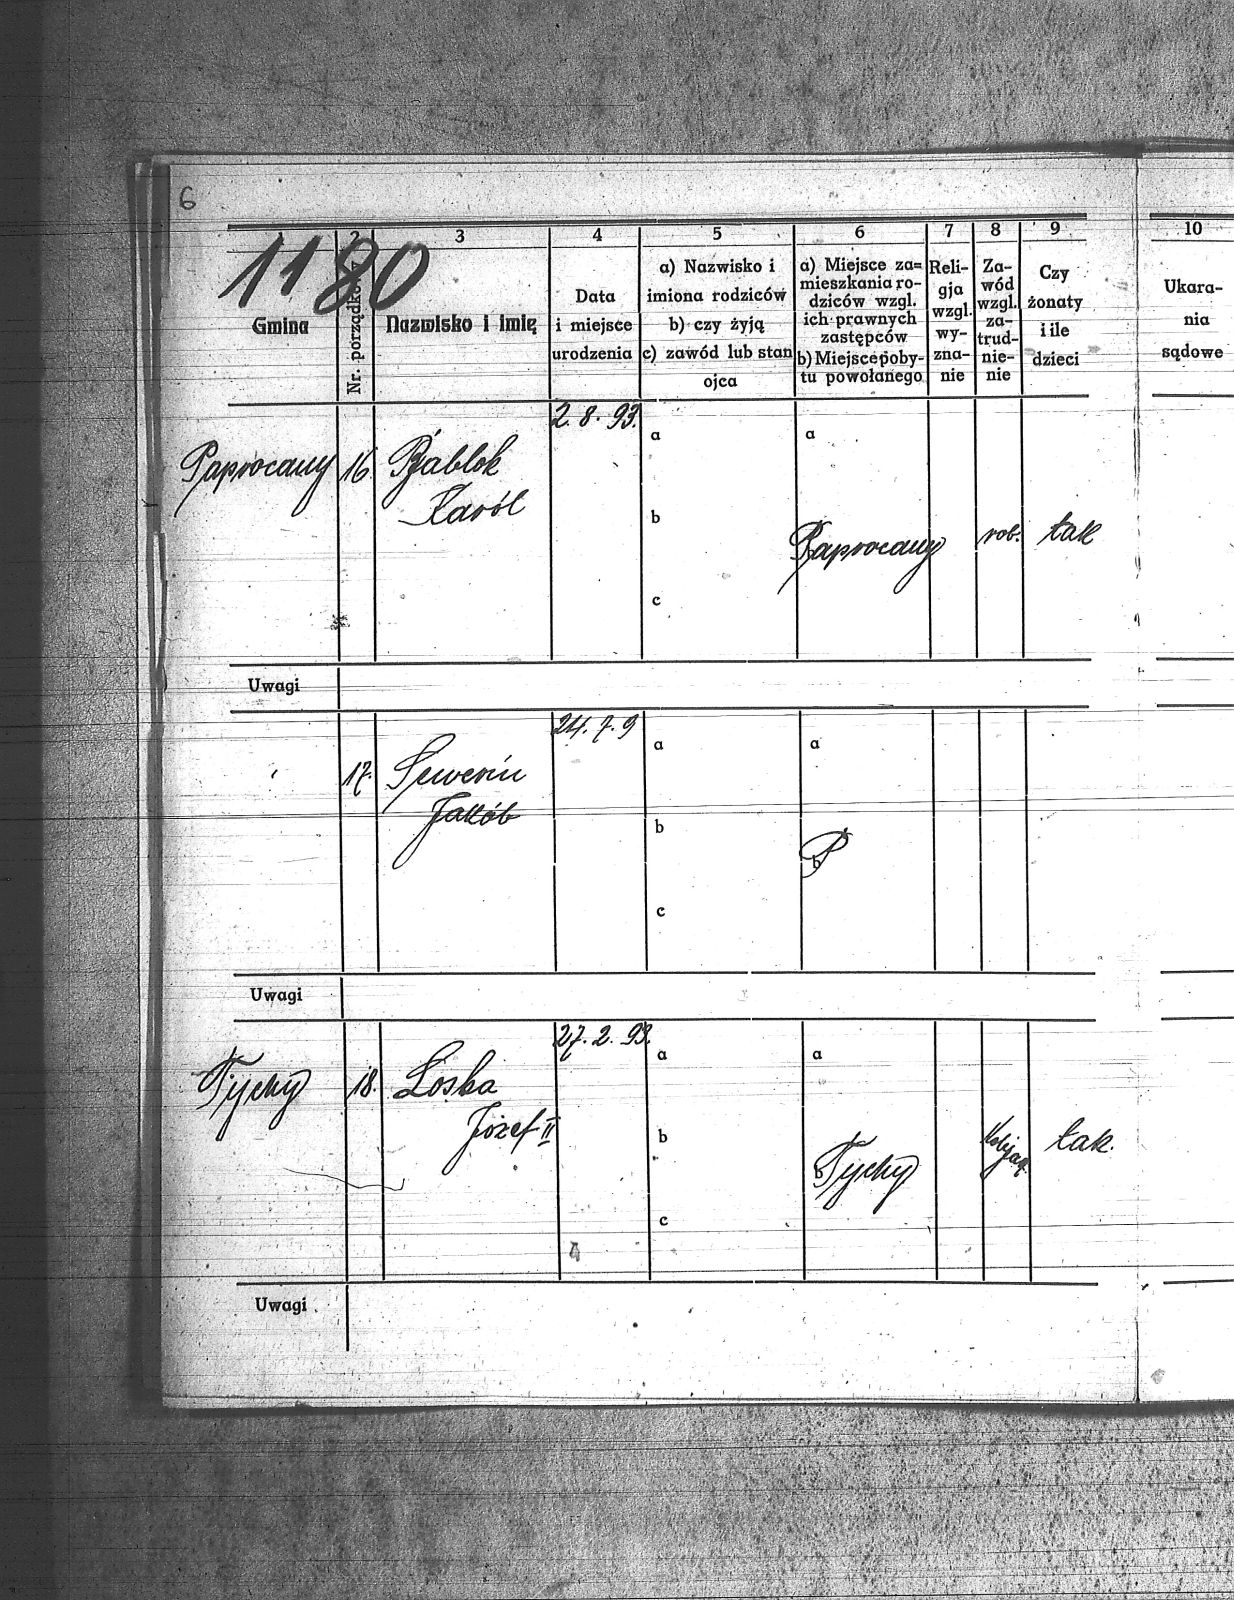 6
1180
1
2
3
4
5
6
7
8
9
10
Gmina
Nr. porządkow.
Nazwisko i imię
Data
i miejsce
urodzenia
a) Nazwisko i
imiona rodziców
b) czy żyją
c) zawód lub stan
ojca
a) Miejsce za=
mieszkania ro-
dziców wzgl.
ich prawnych
zastępców
b) Miejsce poby-
tu powołanego
Reli-
gja
wzgl.
wy-
zna-
nie
Za-
wód
wzgl.
za-
trud-
nie-
nie
Czy
żonaty
i ile
dzieci
Ukara-
nia
sądowe
Paprocany
16
Karól
2. 8. 93.
a
b
c
a
Paprocany
rob.
tak
Uwagi
17.
Sewerin
Jakób
24. 7. 9
a
b
c
a
b
P
Uwagi
Tychy
18.
Loska
Józef II
27. 2. 93.
a
b
c
a
b
Tychy
tak.
Uwagi